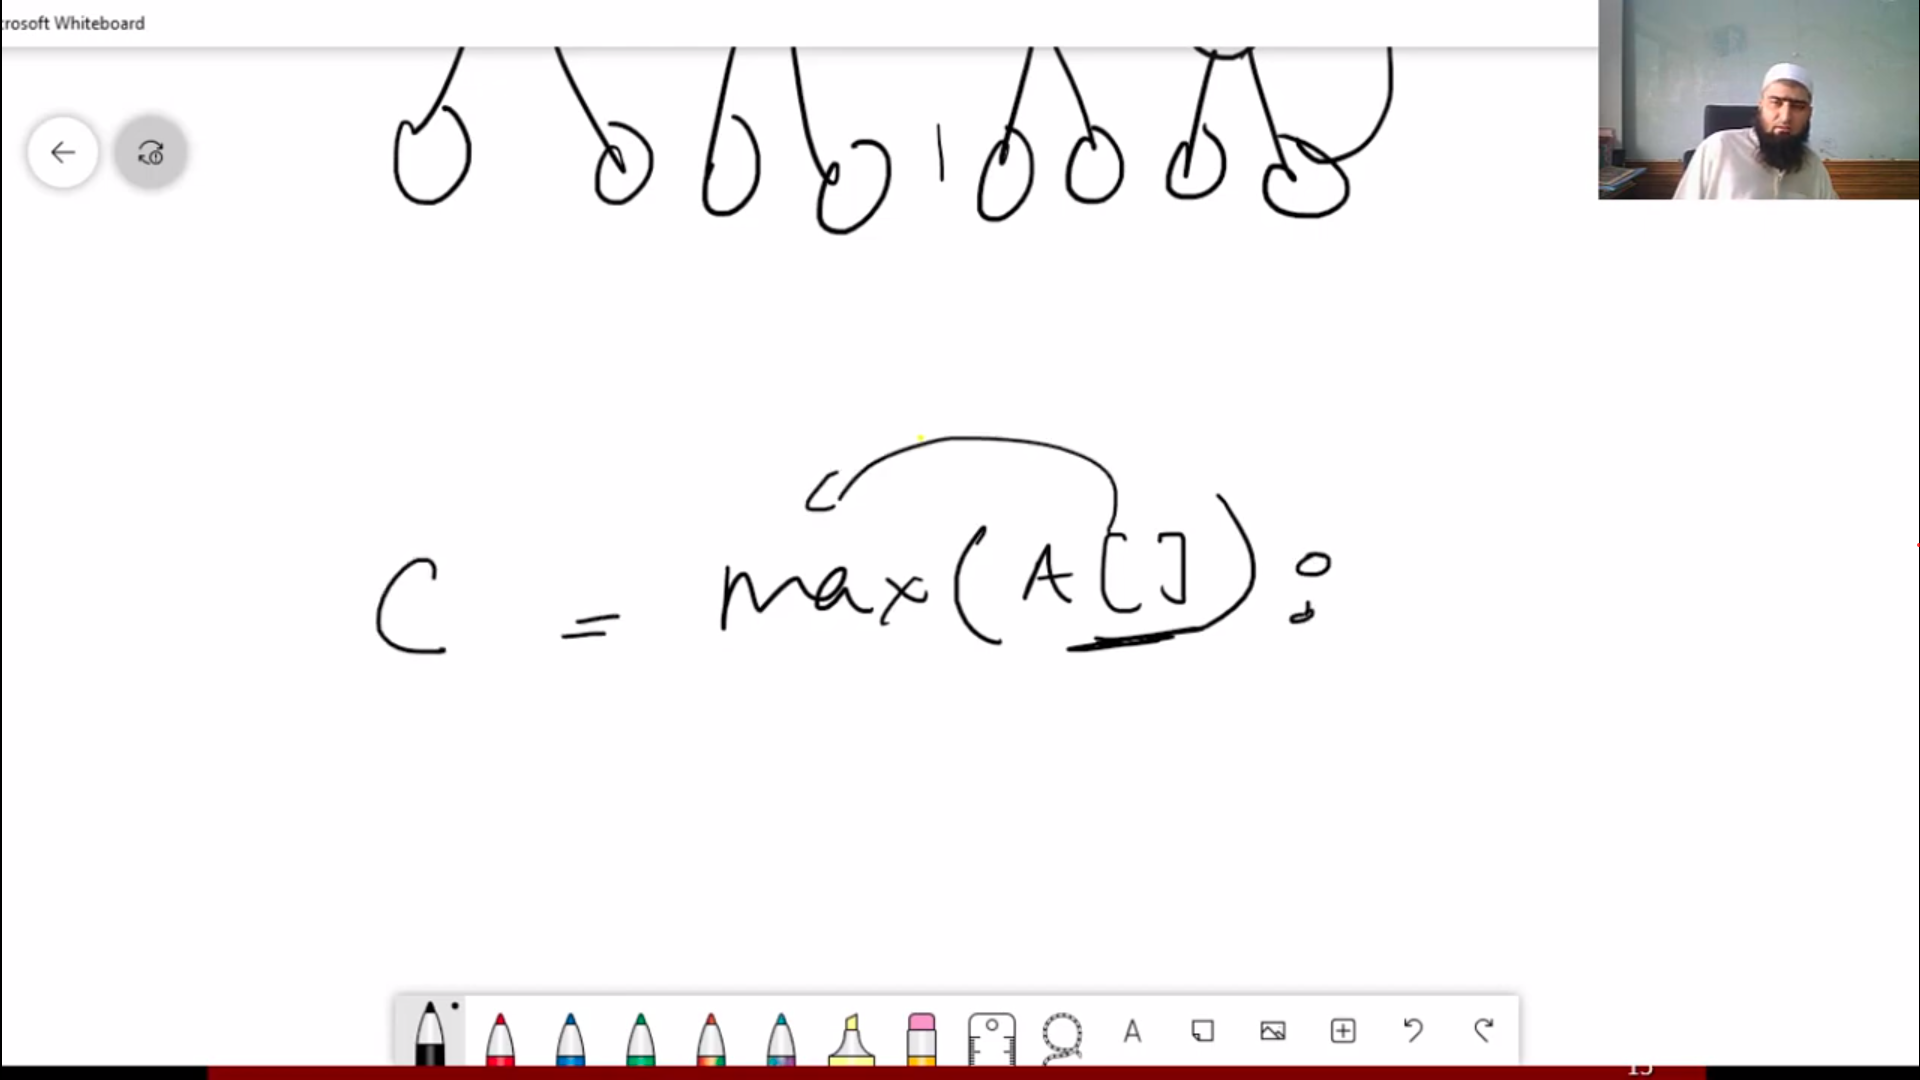 crosoft Whiteboard
C = max(A[]);
A
15